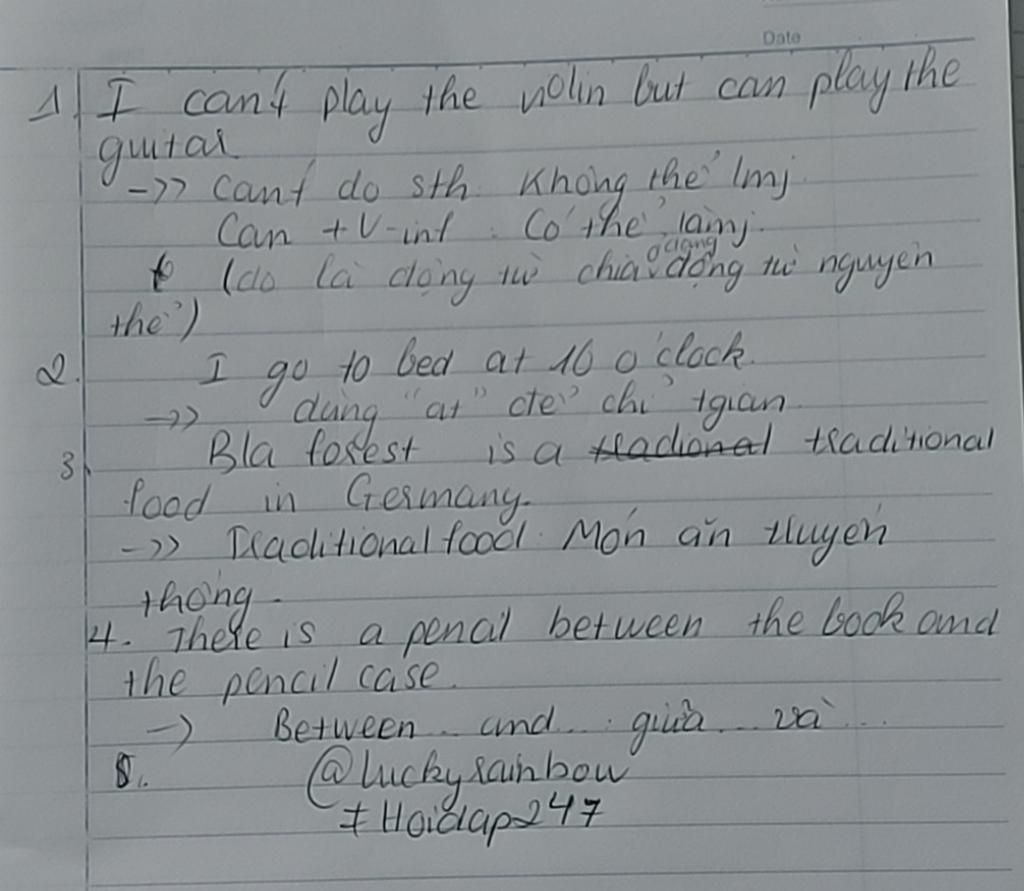 Date
1. I can't play the violin but can play the
guitar
->> Can't do sth: Không thể lmj.
Can + V-inf: Có thể làmj.
(do là động từ chia ở dạng động từ nguyên
thể)
2. I go to bed at 10 o'clock.
->> dùng "at" để chỉ tgian
3. Bla forest is a tradional traditional
food in Germany.
->> Traditional food: Món ăn truyền
thống.
4. There is a pencil between the book and
the pencil case.
-> Between... and...: giữa... và...
5. @luckyrainbow
#Hoidap247